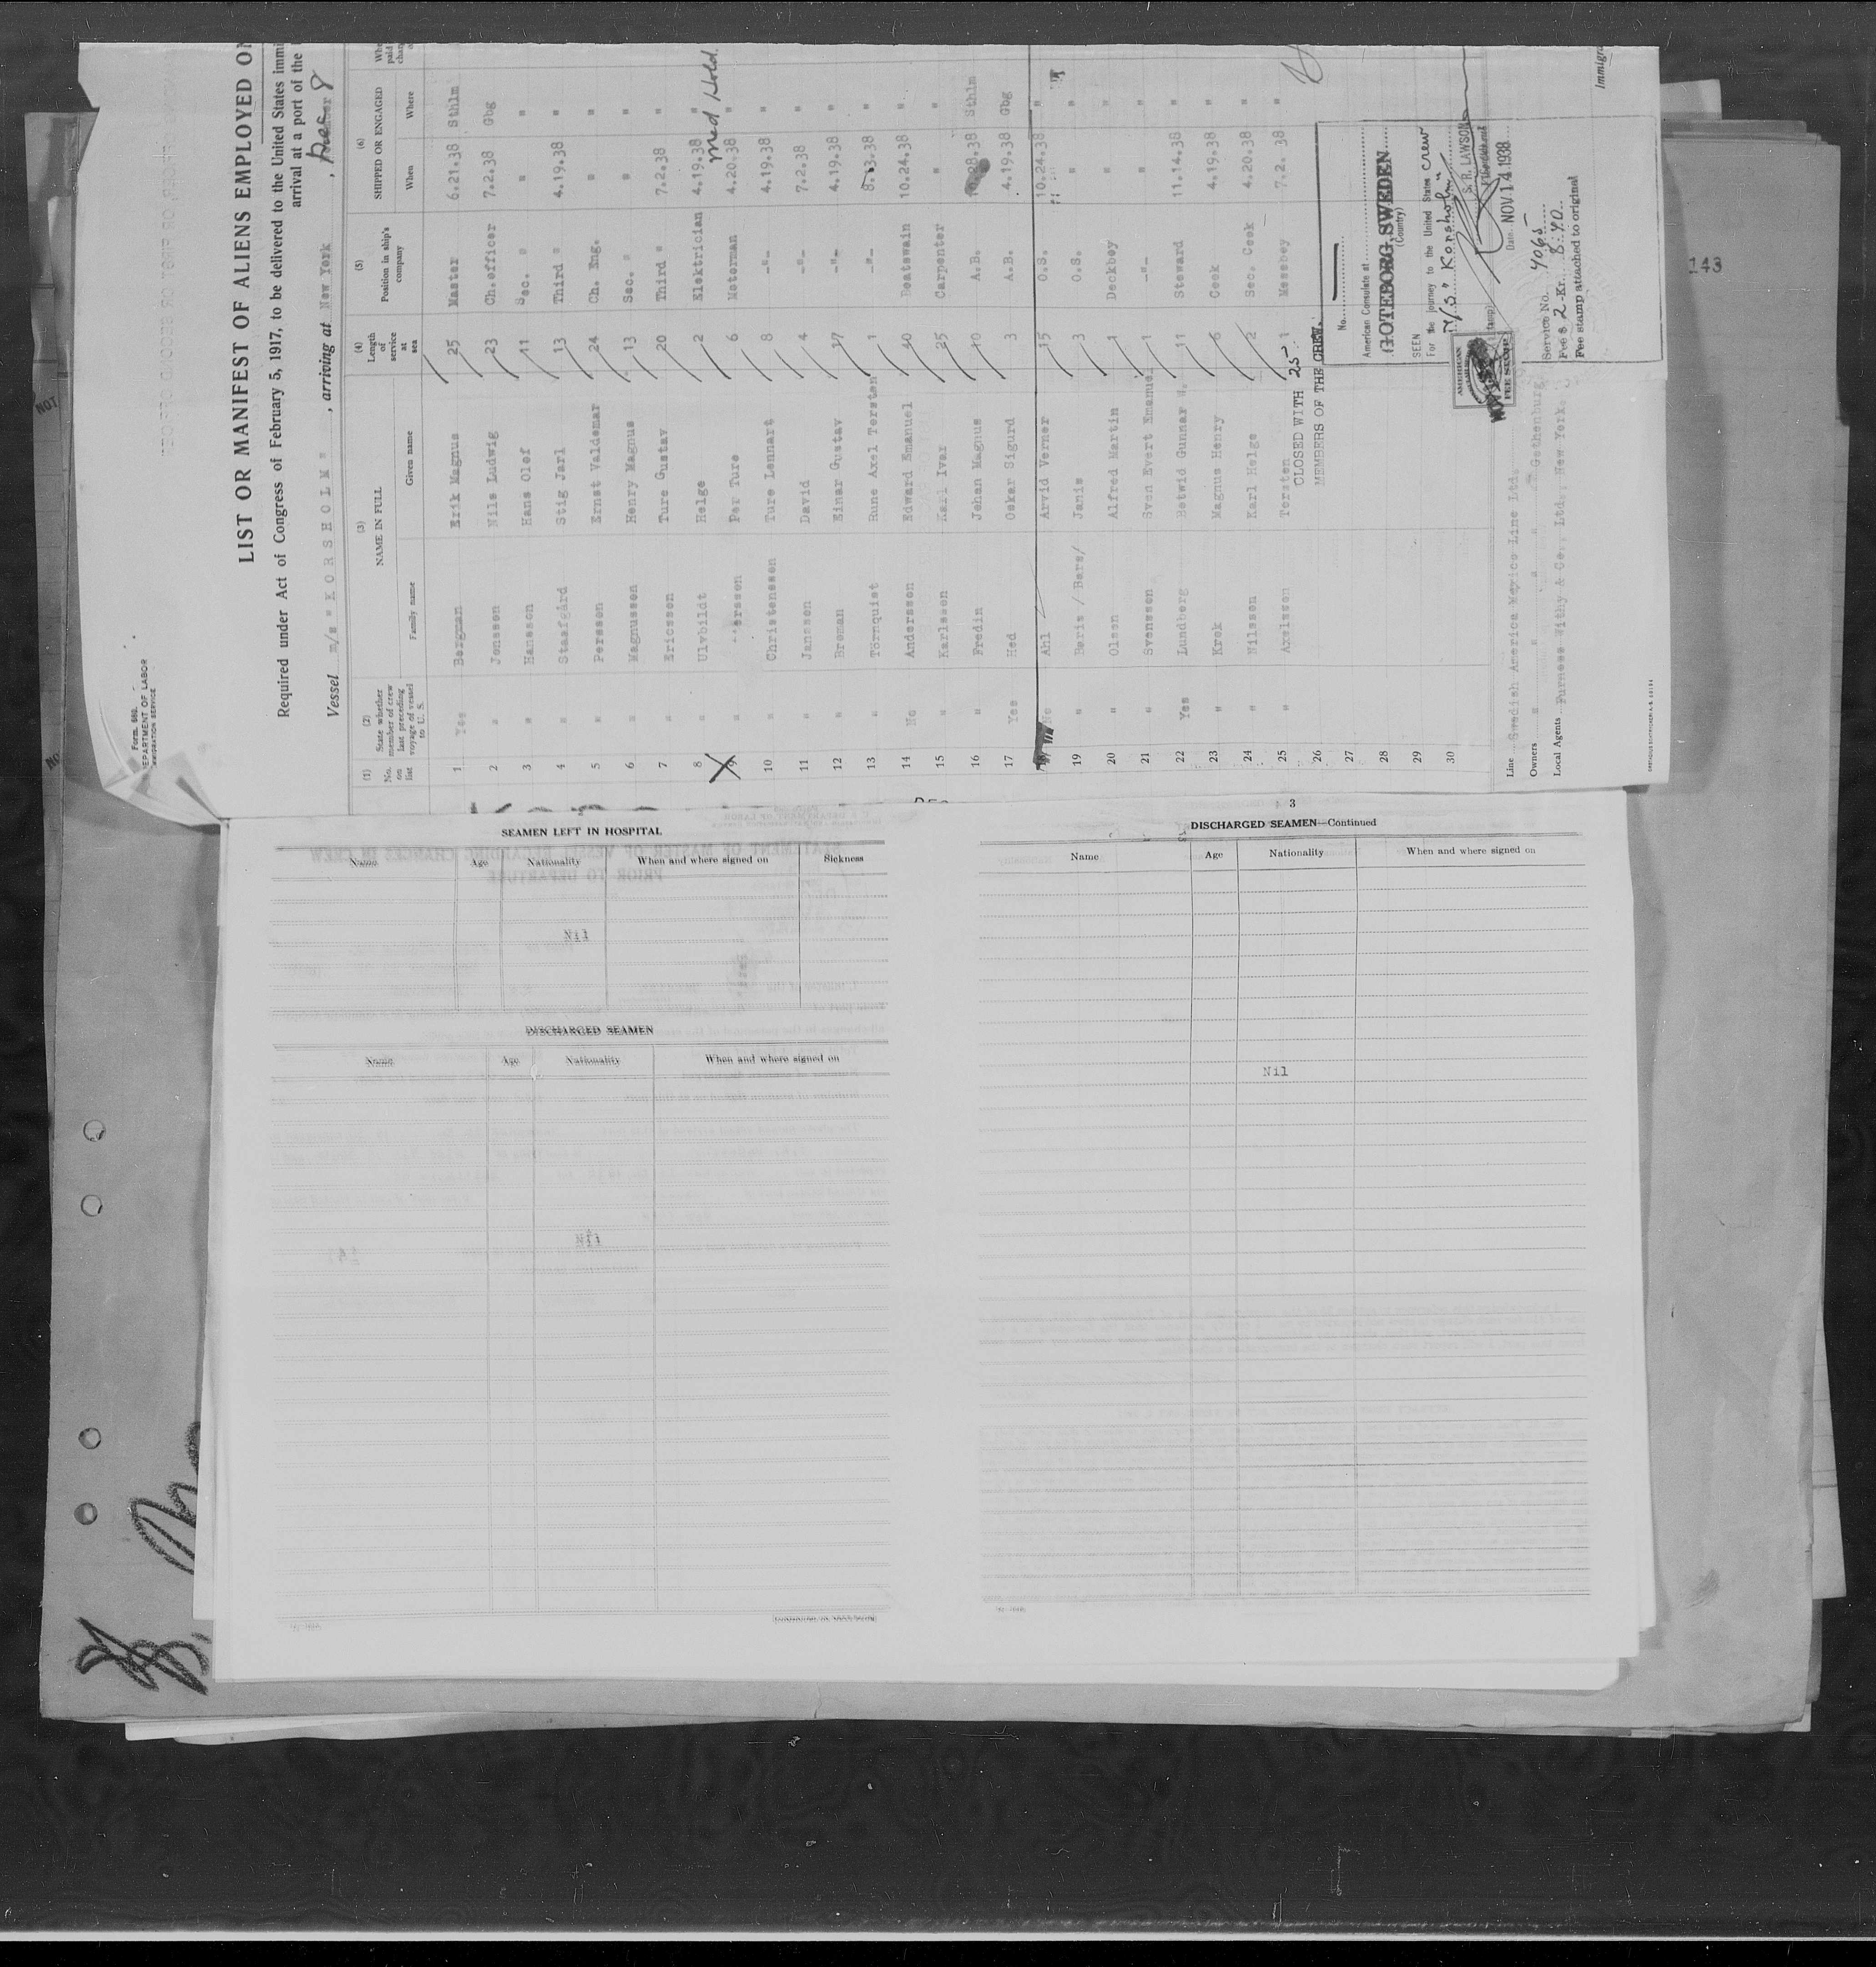 Form 680
DEPARTMENT OF LABOR
IMMIGRATION SERVICE
LIST OR MANIFEST OF ALIENS EMPLOYED ON
Required under Act of Congress of February 5, 1917, to be delivered to the United States immi
arrival at a port of the
Vessel m/s "KORSHOLM", arriving at New York, Dec 8
(1) No. on list (2) State whether member of crew last preceding voyage of vessel to U. S. (3) NAME IN FULL Family name Given name (4) Length of service at sea (5) Position in ship's company (6) SHIPPED OR ENGAGED When Where
1 Yes Bergman Erik Magnus 25 Master 6.21.38 Sthlm
2 " Jonsson Nils Ludwig 23 Ch.officer 7.2.38 Gbg
3 " Hansson Hans Olof 11 Sec. " " "
4 " Staafgård Stig Jarl 13 Third " 4.19.38 "
5 " Persson Ernst Valdemar 24 Ch. Eng. " "
6 " Magnusson Henry Magnus 13 Sec. " " "
7 " Ericsson Ture Gustav 20 Third " 7.2.38 "
8 " Ulvbildt Helge 2 Elektrician 4.19.38 "
Med Hold.
9 " Persson Per Ture 6 Motorman 4.20.38 "
10 " Christensson Ture Lennart 8 -"- 4.19.38 "
11 " Jansson David 4 -"- 7.2.38 "
12 " Broman Einar Gustav 17 -"- 4.19.38 "
13 " Törnquist Rune Axel Torsten 1 -"- 8.13.38 "
14 No Andersson Edward Emanuel 40 Boatswain 10.24.38 "
15 " Karlsson Karl Ivar 25 Carpenter " "
16 " Fredin Johan Magnus 10 A.B. 10.28.38 Sthlm
17 Yes Hed Oskar Sigurd 3 A.B. 4.19.38 Gbg
No Ahl Arvid Verner 15 O.S. 10.24.38 "
19 " Beris / Bars/ Janis 3 O.S. " "
20 " Olsen Alfred Martin 1 Deckboy " "
21 " Svensson Sven Evert Emanuel 1 -"- " "
22 Yes Lundberg Botwid Gunnar W. 11 Steward 11.14.38 "
23 " Krok Magnus Henry 6 Cook 4.19.38 "
24 " Nilsson Karl Helge 2 Sec. Cook 4.20.38 "
25 " Axelsson Torsten 1 Messboy 7.2.38 "
26
27
28
29
30
CLOSED WITH 25
MEMBERS OF THE CREW.
No.
American Consulate at
GOTEBORG, SWEDEN
(Country)
SEEN
For the journey to the United States Crew
M/S "Korsholm"
S. R. LAWSON
Date. NOV 14 1938
AMERICAN
FEE STAMP
Service No. 4065
Fee $ 2 -Kr. 8.40
Fee stamp attached to original
Line Swedish America Mexico Line Ltd.
Owners " " " " Gothenburg
Local Agents Furness Withy & Co., Ltd., New York.
Immigra
143
SEAMEN LEFT IN HOSPITAL
Name Age Nationality When and where signed on Sickness
Nil
DISCHARGED SEAMEN
Name Age Nationality When and where signed on
Nil
3
DISCHARGED SEAMEN—Continued
Name Age Nationality When and where signed on
Nil